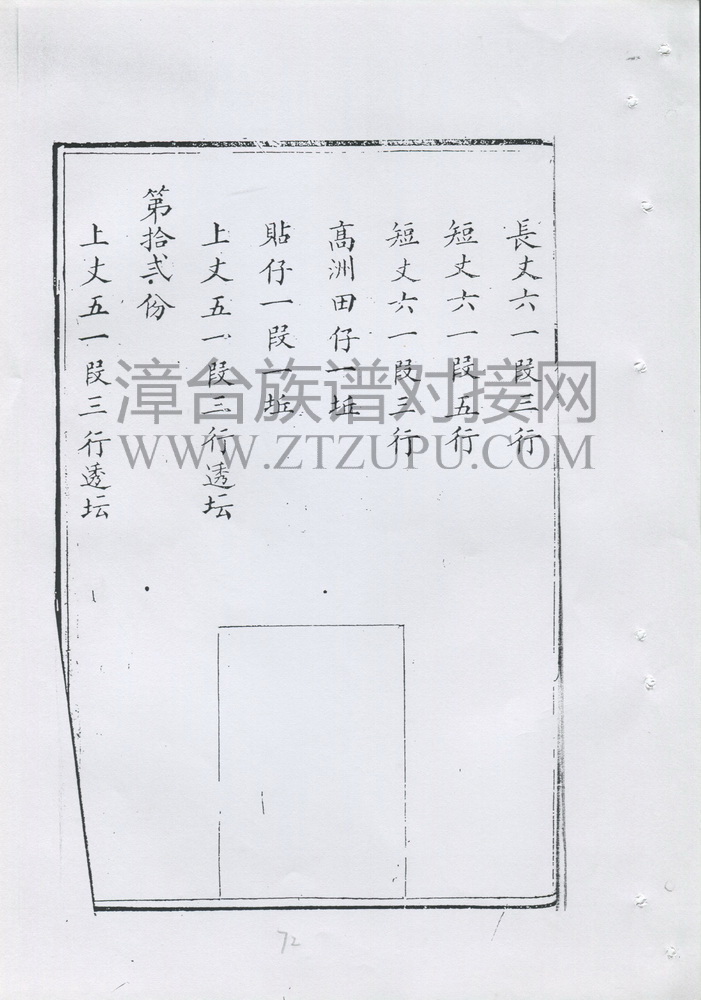 長丈六一段三行
短丈六一段五行
短丈六一段三行
高洲田仔一坵
貼仔一段一坵
上丈五一段三行透坛
第拾弍份
上丈五一段三行透坛
漳台族谱对接网
WWW.ZTZUPU.COM
72